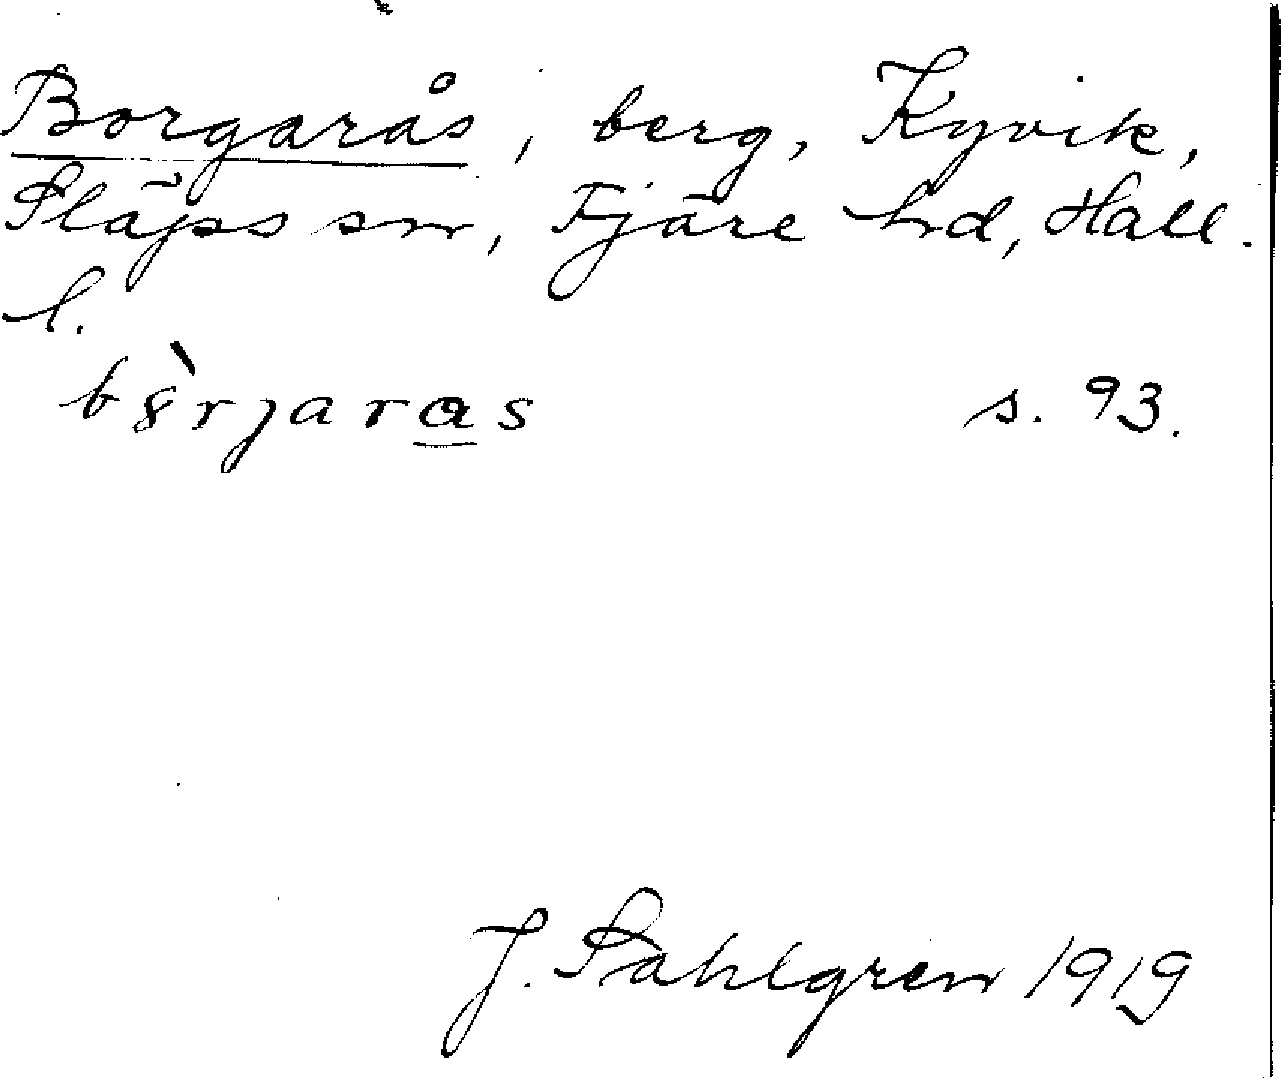 Borgarås, berg, Kyvik,
Släps sn, Fjäre hd, Hall.
l.
s. 93.
J. Sahlgren 1919